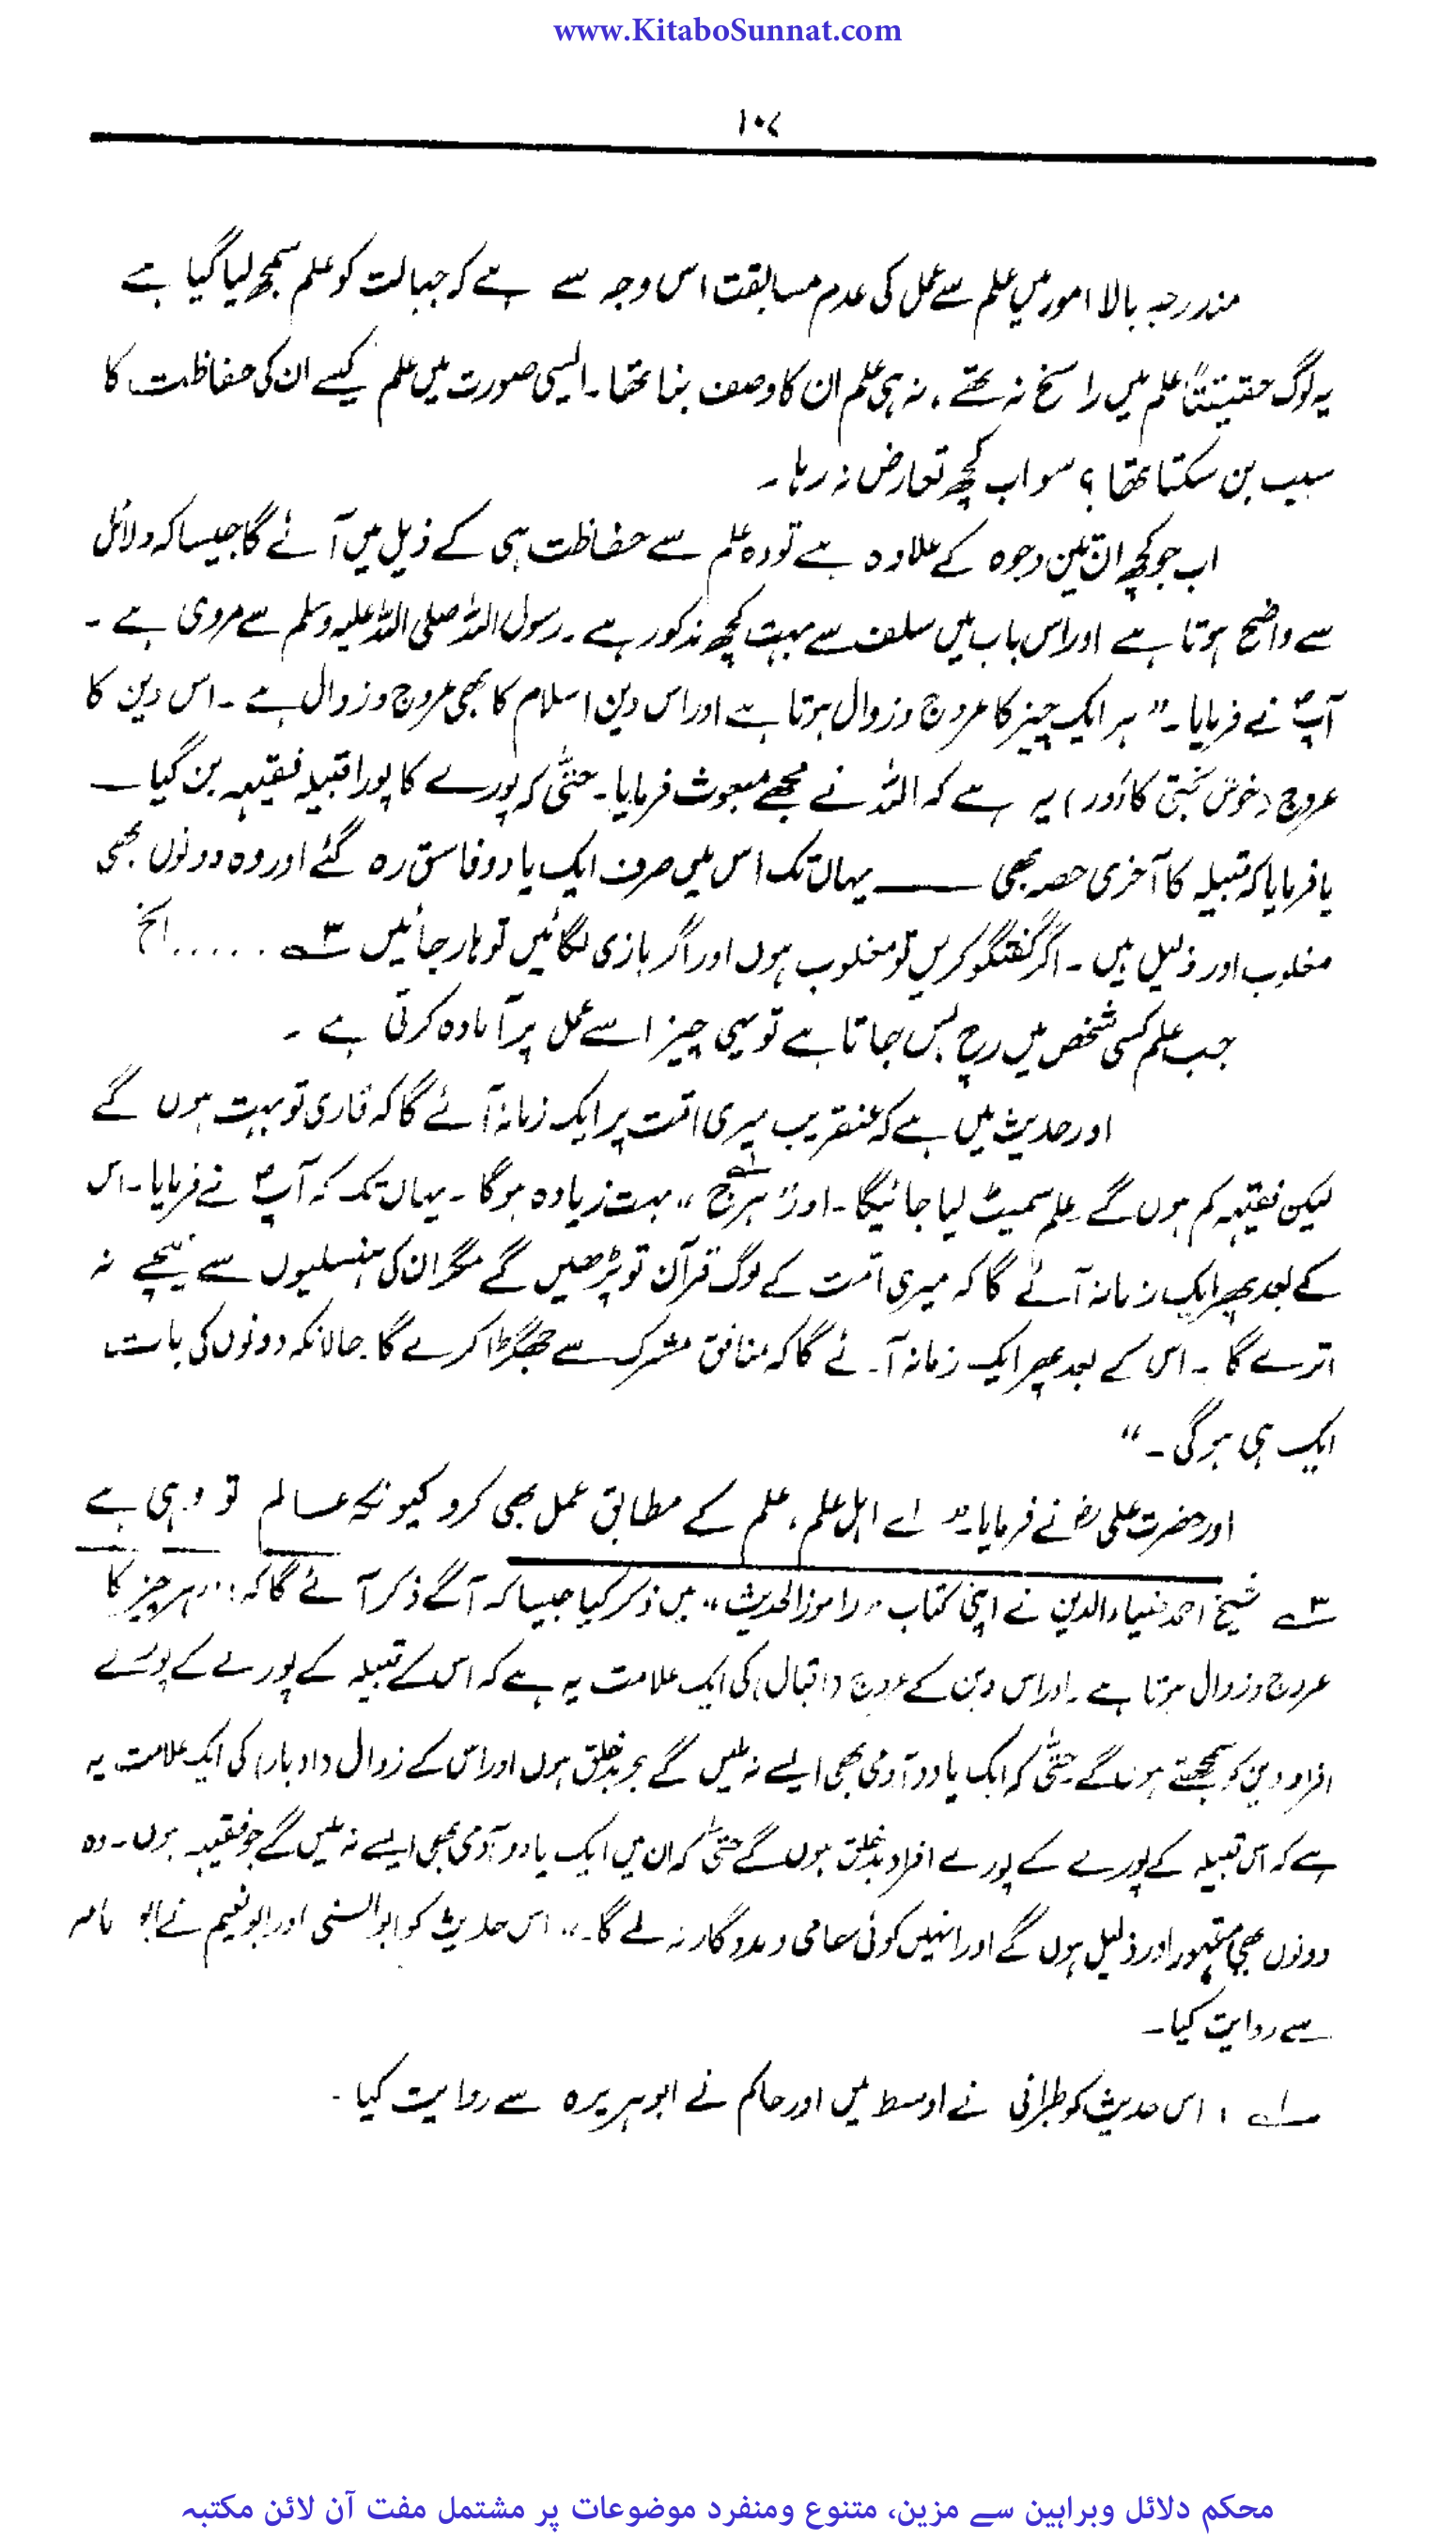 www.KitaboSunnat.com
۱۰۷
مندرجہ بالا امور میں علم سے عمل کی عدم مسابقت اس وجہ سے ہے کہ جہالت کو علم سمجھ لیا گیا ہے
یہ لوگ حقیقتاً علم میں راسخ نہ تھے، نہ ہی علم ان کا وصف بنا تھا۔ ایسی صورت میں علم کیسے ان کی حفاظت کا
سبب بن سکتا تھا؟ سو اب کچھ تعارض نہ رہا۔
اب جو کچھ ان تین وجوہ کے علاوہ ہے تو وہ علم سے حفاظت ہی کے ذیل میں آئے گا جیسا کہ دلائل
سے واضح ہوتا ہے اور اس باب میں سلف سے بہت کچھ مذکور ہے۔ رسول اللہ صلی اللہ علیہ وسلم سے مروی ہے۔
آپؐ نے فرمایا۔ ”ہر ایک چیز کا عروج و زوال ہوتا ہے اور اس دین اسلام کا بھی عروج و زوال ہے۔ اس دین کا
عروج (خوش بختی کا دور) یہ ہے کہ اللہ نے مجھے مبعوث فرمایا۔ حتیٰ کہ پورے کا پورا قبیلہ فقیہہ بن گیا —
یا فرمایا کہ قبیلہ کا آخری حصہ بھی — یہاں تک اس میں صرف ایک یا دو فاسق رہ گئے اور وہ دونوں بھی
مغلوب اور ذلیل ہیں۔ اگر گفتگو کریں تو مغلوب ہوں اور اگر بازی لگائیں تو ہار جائیں ۳؎ ..... الخ
جب علم کسی شخص میں رچ بس جاتا ہے تو یہی چیز اسے عمل پر آمادہ کرتی ہے۔
اور حدیث میں ہے کہ عنقریب میری امت پر ایک زمانہ آئے گا کہ قاری تو بہت ہوں گے
لیکن فقیہہ کم ہوں گے علم سمیٹ لیا جائیگا۔ اور ”ہرج“ ۱؎ بہت زیادہ ہوگا۔ یہاں تک کہ آپؐ نے فرمایا۔ اس
کے بعد پھر ایک زمانہ آئے گا کہ میری امت کے لوگ قرآن تو پڑھیں گے مگر ان کی ہنسلیوں سے نیچے نہ
اترے گا۔ اس کے بعد پھر ایک زمانہ آئے گا کہ منافق مشرک سے جھگڑا کرے گا حالانکہ دونوں کی بات
ایک ہی ہوگی۔“
اور حضرت علیؓ نے فرمایا۔ ”اے اہل علم، علم کے مطابق عمل بھی کرو کیونکہ عالم تو وہی ہے
۳؎ شیخ احمد ضیاء الدین نے اپنی کتاب ”راموز الحدیث“ میں ذکر کیا جیسا کہ آگے ذکر آئے گا کہ: ”ہر چیز کا
عروج و زوال ہوتا ہے۔ اور اس دین کے عروج (اقبال) کی ایک علامت یہ ہے کہ اس کے قبیلہ کے پورے کے پورے
افراد دین کو سمجھتے ہوں گے حتیٰ کہ ایک یا دو آدمی بھی ایسے نہ ملیں گے جو بدخلق ہوں اور اس کے زوال (ادبار) کی ایک علامت یہ
ہے کہ اس قبیلہ کے پورے کے پورے افراد بدخلق ہوں گے حتیٰ کہ ان میں ایک یا دو آدمی بھی ایسے نہ ملیں گے جو فقیہہ ہوں۔ وہ
دونوں بھی مقہور اور ذلیل ہوں گے اور انہیں کوئی حامی و مددگار نہ ملے گا۔“ اس حدیث کو ابو السنی اور ابو نعیم نے ابو مامہ
سے روایت کیا۔
۱؎ : اس حدیث کو طبرانی نے اوسط میں اور حاکم نے ابو ہریرہ سے روایت کیا۔
محکم دلائل وبراہین سے مزین، متنوع ومنفرد موضوعات پر مشتمل مفت آن لائن مکتبہ